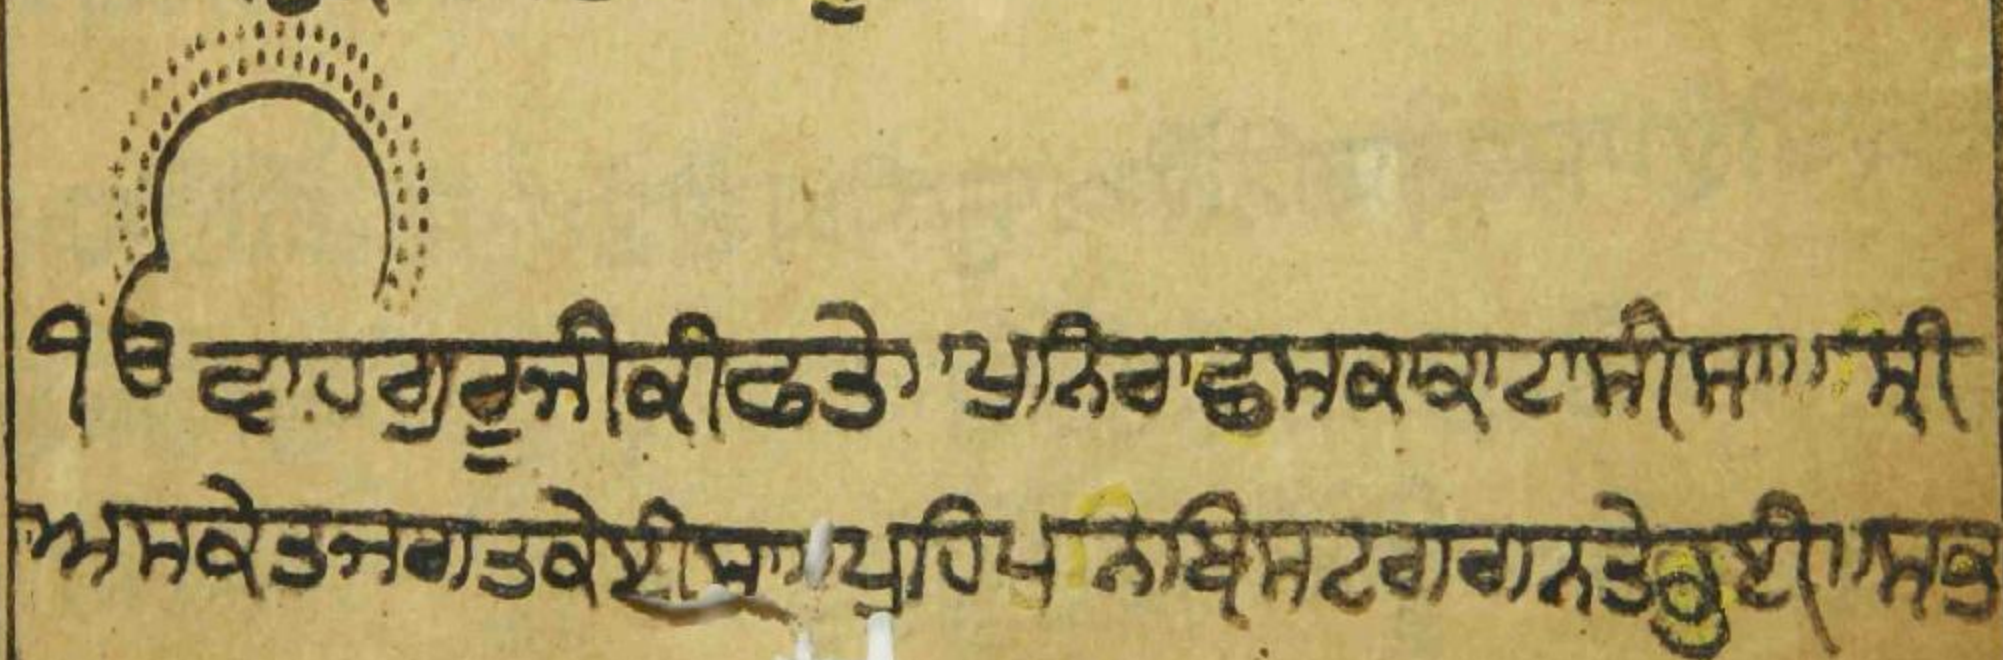 ੴ ਵਾਹਗੁਰੂਜੀਕੀਫਤੇ ਪੁਨਿਰਾਛਸਕਕਾਟਾਸੀਸਾ॥ ਸ੍ਰੀ
ਅਸਕੇਤਜਗਤਕੇਈਸਾ॥ਪੁਹਿਪਨਬ੍ਰਿਸਟਗਗਨਤੇਹੁਈ॥ਸਭ